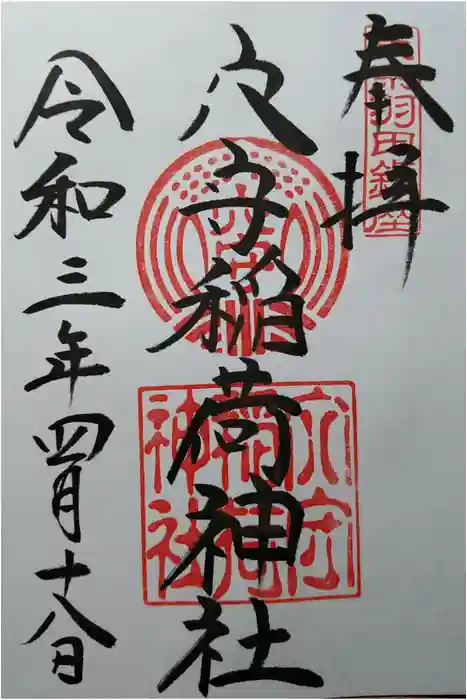 奉拝
東京羽田鎮座
穴守稲荷神社
穴守稲荷神社
令和三年四月十八日